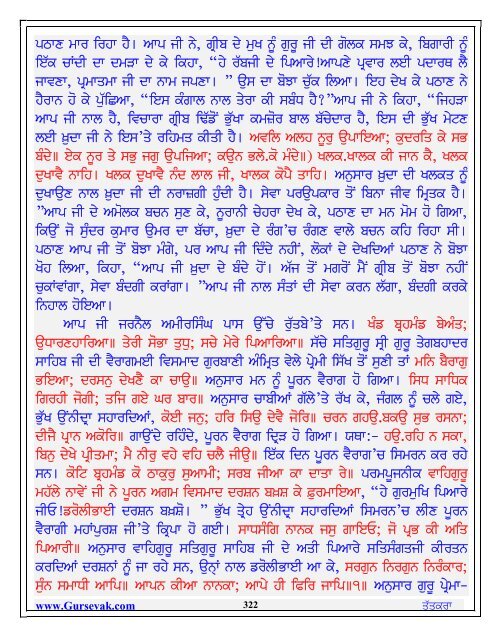 ਪਠਾਣ ਮਾਰ ਰਿਹਾ ਹੈ। ਆਪ ਜੀ ਨੇ, ਗ੍ਰੀਬ ਦੇ ਮੁਖ ਨੂੰ ਗੁਰੂ ਜੀ ਦੀ ਗੋਲਕ ਸਮਝ ਕੇ, ਬਿਗਾਰੀ ਨੂੰ
ਇੱਕ ਚਾਂਦੀ ਦਾ ਦਮੜਾ ਦੇ ਕੇ ਕਿਹਾ, “ਹੇ ਰੱਬਜੀ ਦੇ ਪਿਆਰੇ!ਆਪਣੇ ਪ੍ਰਵਾਰ ਲਈ ਪਦਾਰਥ ਲੈ
ਜਾਵਣਾ, ਪ੍ਰਮਾਤਮਾ ਜੀ ਦਾ ਨਾਮ ਜਪਣਾ। ” ਉਸ ਦਾ ਬੋਝਾ ਚੁੱਕ ਲਿਆ। ਇਹ ਦੇਖ ਕੇ ਪਠਾਣ ਨੇ
ਹੈਰਾਨ ਹੋ ਕੇ ਪੁੱਛਿਆ, “ਇਸ ਕੰਗਾਲ ਨਾਲ ਤੇਰਾ ਕੀ ਸਬੰਧ ਹੈ?”ਆਪ ਜੀ ਨੇ ਕਿਹਾ, “ਜਿਹੜਾ
ਆਪ ਜੀ ਨਾਲ ਹੈ, ਵਿਚਾਰਾ ਗ੍ਰੀਬ ਢਿੱਡੋਂ ਭੁੱਖਾ ਕਮਜ਼ੋਰ ਬਾਲ ਬੱਚੇਦਾਰ ਹੈ, ਇਸ ਦੀ ਭੁੱਖ ਮੇਟਣ
ਲਈ ਖ਼ੁਦਾ ਜੀ ਨੇ ਇਸ’ਤੇ ਰਹਿਮਤ ਕੀਤੀ ਹੈ। ਅਵਲਿ ਅਲਹ ਨੂਰੁ ਉਪਾਇਆ; ਕੁਦਰਤਿ ਕੇ ਸਭ
ਬੰਦੇ॥ ਏਕ ਨੂਰ ਤੇ ਸਭੁ ਜਗੁ ਉਪਜਿਆ; ਕਉਨ ਭਲੇ.ਕੋ ਮੰਦੇ॥) ਖਲਕ.ਖਾਲਕ ਕੀ ਜਾਨ ਕੈ, ਖਲਕ
ਦੁਖਾਵੈ ਨਾਹਿ। ਖਲਕ ਦੁਖਾਵੈ ਨੰਦ ਲਾਲ ਜੀ, ਖਾਲਕ ਕੋਪੈ ਤਾਹਿ। ਅਨੁਸਾਰ ਖ਼ੁਦਾ ਦੀ ਖਲਕਤ ਨੂੰ
ਦੁਖਾਉਣ ਨਾਲ ਖ਼ੁਦਾ ਜੀ ਦੀ ਨਰਾਜ਼ਗੀ ਹੁੰਦੀ ਹੈ। ਸੇਵਾ ਪਰਉਪਕਾਰ ਤੋਂ ਬਿਨਾ ਜੀਵ ਮ੍ਰਿਤਕ ਹੈ।
”ਆਪ ਜੀ ਦੇ ਅਮੋਲਕ ਬਚਨ ਸੁਣ ਕੇ, ਨੂਰਾਨੀ ਚੇਹਰਾ ਦੇਖ ਕੇ, ਪਠਾਣ ਦਾ ਮਨ ਮੋਮ ਹੋ ਗਿਆ,
ਕਿਉਂ ਜੋ ਸੁੰਦਰ ਕੁਮਾਰ ਉਮਰ ਦਾ ਬੱਚਾ, ਖ਼ੁਦਾ ਦੇ ਰੰਗ’ਚ ਰੰਗਣ ਵਾਲੇ ਬਚਨ ਕਹਿ ਰਿਹਾ ਸੀ।
ਪਠਾਣ ਆਪ ਜੀ ਤੋਂ ਬੋਝਾ ਮੰਗੇ, ਪਰ ਆਪ ਜੀ ਦਿੰਦੇ ਨਹੀਂ, ਲੋਕਾਂ ਦੇ ਦੇਖਦਿਆਂ ਪਠਾਣ ਨੇ ਬੋਝਾ
ਖੋਹ ਲਿਆ, ਕਿਹਾ, “ਆਪ ਜੀ ਖ਼ੁਦਾ ਦੇ ਬੰਦੇ ਹੋਂ। ਅੱਜ ਤੋਂ ਮਗਰੋਂ ਮੈਂ ਗ੍ਰੀਬ ਤੋਂ ਬੋਝਾ ਨਹੀਂ
ਚੁਕਾਂਵਾਂਗਾ, ਸੇਵਾ ਬੰਦਗੀ ਕਰਾਂਗਾ। ”ਆਪ ਜੀ ਨਾਲ ਸੰਤਾਂ ਦੀ ਸੇਵਾ ਕਰਨ ਲੱਗਾ, ਬੰਦਗੀ ਕਰਕੇ
ਨਿਹਾਲ ਹੋਇਆ।
ਆਪ ਜੀ ਜਰਨੈਲ ਅਮੀਰਸਿੰਘ ਪਾਸ ਉੱਚੇ ਰੁੱਤਬੇ’ਤੇ ਸਨ। ਖੰਡ ਬ੍ਰਹਮੰਡ ਬੇਅੰਤ;
ਉਧਾਰਣਹਾਰਿਆ॥ ਤੇਰੀ ਸੋਭਾ ਤੁਧੁ; ਸਚੇ ਮੇਰੇ ਪਿਆਰਿਆ॥ ਸੱਚੇ ਸਤਿਗੁਰੂ ਸ੍ਰੀ ਗੁਰੂ ਤੇਗਬਹਾਦਰ
ਸਾਹਿਬ ਜੀ ਦੀ ਵੈਰਾਗਮਈ ਵਿਸਮਾਦ ਗੁਰਬਾਣੀ ਅੰਮ੍ਰਿਤ ਵੇਲੇ ਪ੍ਰੇਮੀ ਸਿੱਖ ਤੋਂ ਸੁਣੀ ਤਾਂ ਮਨਿ ਬੈਰਾਗੁ
ਭਇਆ; ਦਰਸਨੁ ਦੇਖਣੈ ਕਾ ਚਾਉ॥ ਅਨੁਸਾਰ ਮਨ ਨੂੰ ਪੂਰਨ ਵੈਰਾਗ ਹੋ ਗਿਆ। ਸਿਧ ਸਾਧਿਕ
ਗਿਰਹੀ ਜੋਗੀ; ਤਜਿ ਗਏ ਘਰ ਬਾਰ॥ ਅਨੁਸਾਰ ਚਾਬੀਆਂ ਗੱਲੇ’ਤੇ ਰੱਖ ਕੇ, ਜੰਗਲ ਨੂੰ ਚਲੇ ਗਏ,
ਭੁੱਖ ਉੱਨੀਂਦ੍ਰਾ ਸਹਾਰਦਿਆਂ, ਕੋਈ ਜਨੁ; ਹਰਿ ਸਿਉ ਦੇਵੈ ਜੋਰਿ॥ ਚਰਨ ਗਹਉ.ਬਕਉ ਸੁਭ ਰਸਨਾ;
ਦੀਜੈ ਪ੍ਰਾਨ ਅਕੋਰਿ॥ ਗਾਉਂਦੇ ਰਹਿੰਦੇ, ਪੂਰਨ ਵੈਰਾਗ ਦ੍ਰਿੜ ਹੋ ਗਿਆ। ਯਥਾ:- ਹਉ.ਰਹਿ ਨ ਸਕਾ,
ਬਿਨੁ ਦੇਖੇ ਪ੍ਰੀਤਮਾ; ਮੈ ਨੀਰੁ ਵਹੇ ਵਹਿ ਚਲੈ ਜੀਉ॥ ਇੱਕ ਦਿਨ ਪੂਰਨ ਵੈਰਾਗ’ਚ ਸਿਮਰਨ ਕਰ ਰਹੇ
ਸਨ। ਕੋਟਿ ਬ੍ਰਹਮੰਡ ਕੋ ਠਾਕੁਰੁ ਸੁਆਮੀ; ਸਰਬ ਜੀਆ ਕਾ ਦਾਤਾ ਰੇ॥ ਪਰਮਪੂਜਨੀਕ ਵਾਹਿਗੁਰੂ
ਮਹੱਲੇ ਨਾਵੇਂ ਜੀ ਨੇ ਪੂਰਨ ਅਗਮ ਵਿਸਮਾਦ ਦਰਸ਼ਨ ਬਖ਼ਸ਼ ਕੇ ਫ਼ੁਰਮਾਇਆ, “ਹੇ ਗੁਰਮੁਖਿ ਪਿਆਰੇ
ਜੀਓ!ਡਰੋਲੀਭਾਈ ਦਰਸ਼ਨ ਬਖ਼ਸ਼ੋ। ” ਭੁੱਖ ਤ੍ਰੇਹ ਉੱਨੀਂਦ੍ਰਾ ਸਹਾਰਦਿਆਂ ਸਿਮਰਨ’ਚ ਲੀਣ ਪੂਰਨ
ਵੈਰਾਗੀ ਮਹਾਂਪੁਰਸ਼ ਜੀ’ਤੇ ਕ੍ਰਿਪਾ ਹੋ ਗਈ। ਸਾਧਸੰਗਿ ਨਾਨਕ ਜਸੁ ਗਾਇਓ; ਜੋ ਪ੍ਰਭ ਕੀ ਅਤਿ
ਪਿਆਰੀ॥ ਅਨੁਸਾਰ ਵਾਹਿਗੁਰੂ ਸਤਿਗੁਰੂ ਸਾਹਿਬ ਜੀ ਦੇ ਅਤੀ ਪਿਆਰੇ ਸਤਿਸੰਗਤਜੀ ਕੀਰਤਨ
ਕਰਦਿਆਂ ਦਰਸ਼ਨਾਂ ਨੂੰ ਜਾ ਰਹੇ ਸਨ, ਉਨ੍ਹਾਂ ਨਾਲ ਡਰੋਲੀਭਾਈ ਆ ਕੇ, ਸਰਗੁਨ ਨਿਰਗੁਨ ਨਿਰੰਕਾਰ;
ਸੁੰਨ ਸਮਾਧੀ ਆਪਿ॥ ਆਪਨ ਕੀਆ ਨਾਨਕਾ; ਆਪੇ ਹੀ ਫਿਰਿ ਜਾਪਿ॥੧॥ ਅਨੁਸਾਰ ਗੁਰੂ ਪ੍ਰੇਮਾ-
www.Gursevak.com 322 ਤੱਤਕਰਾ